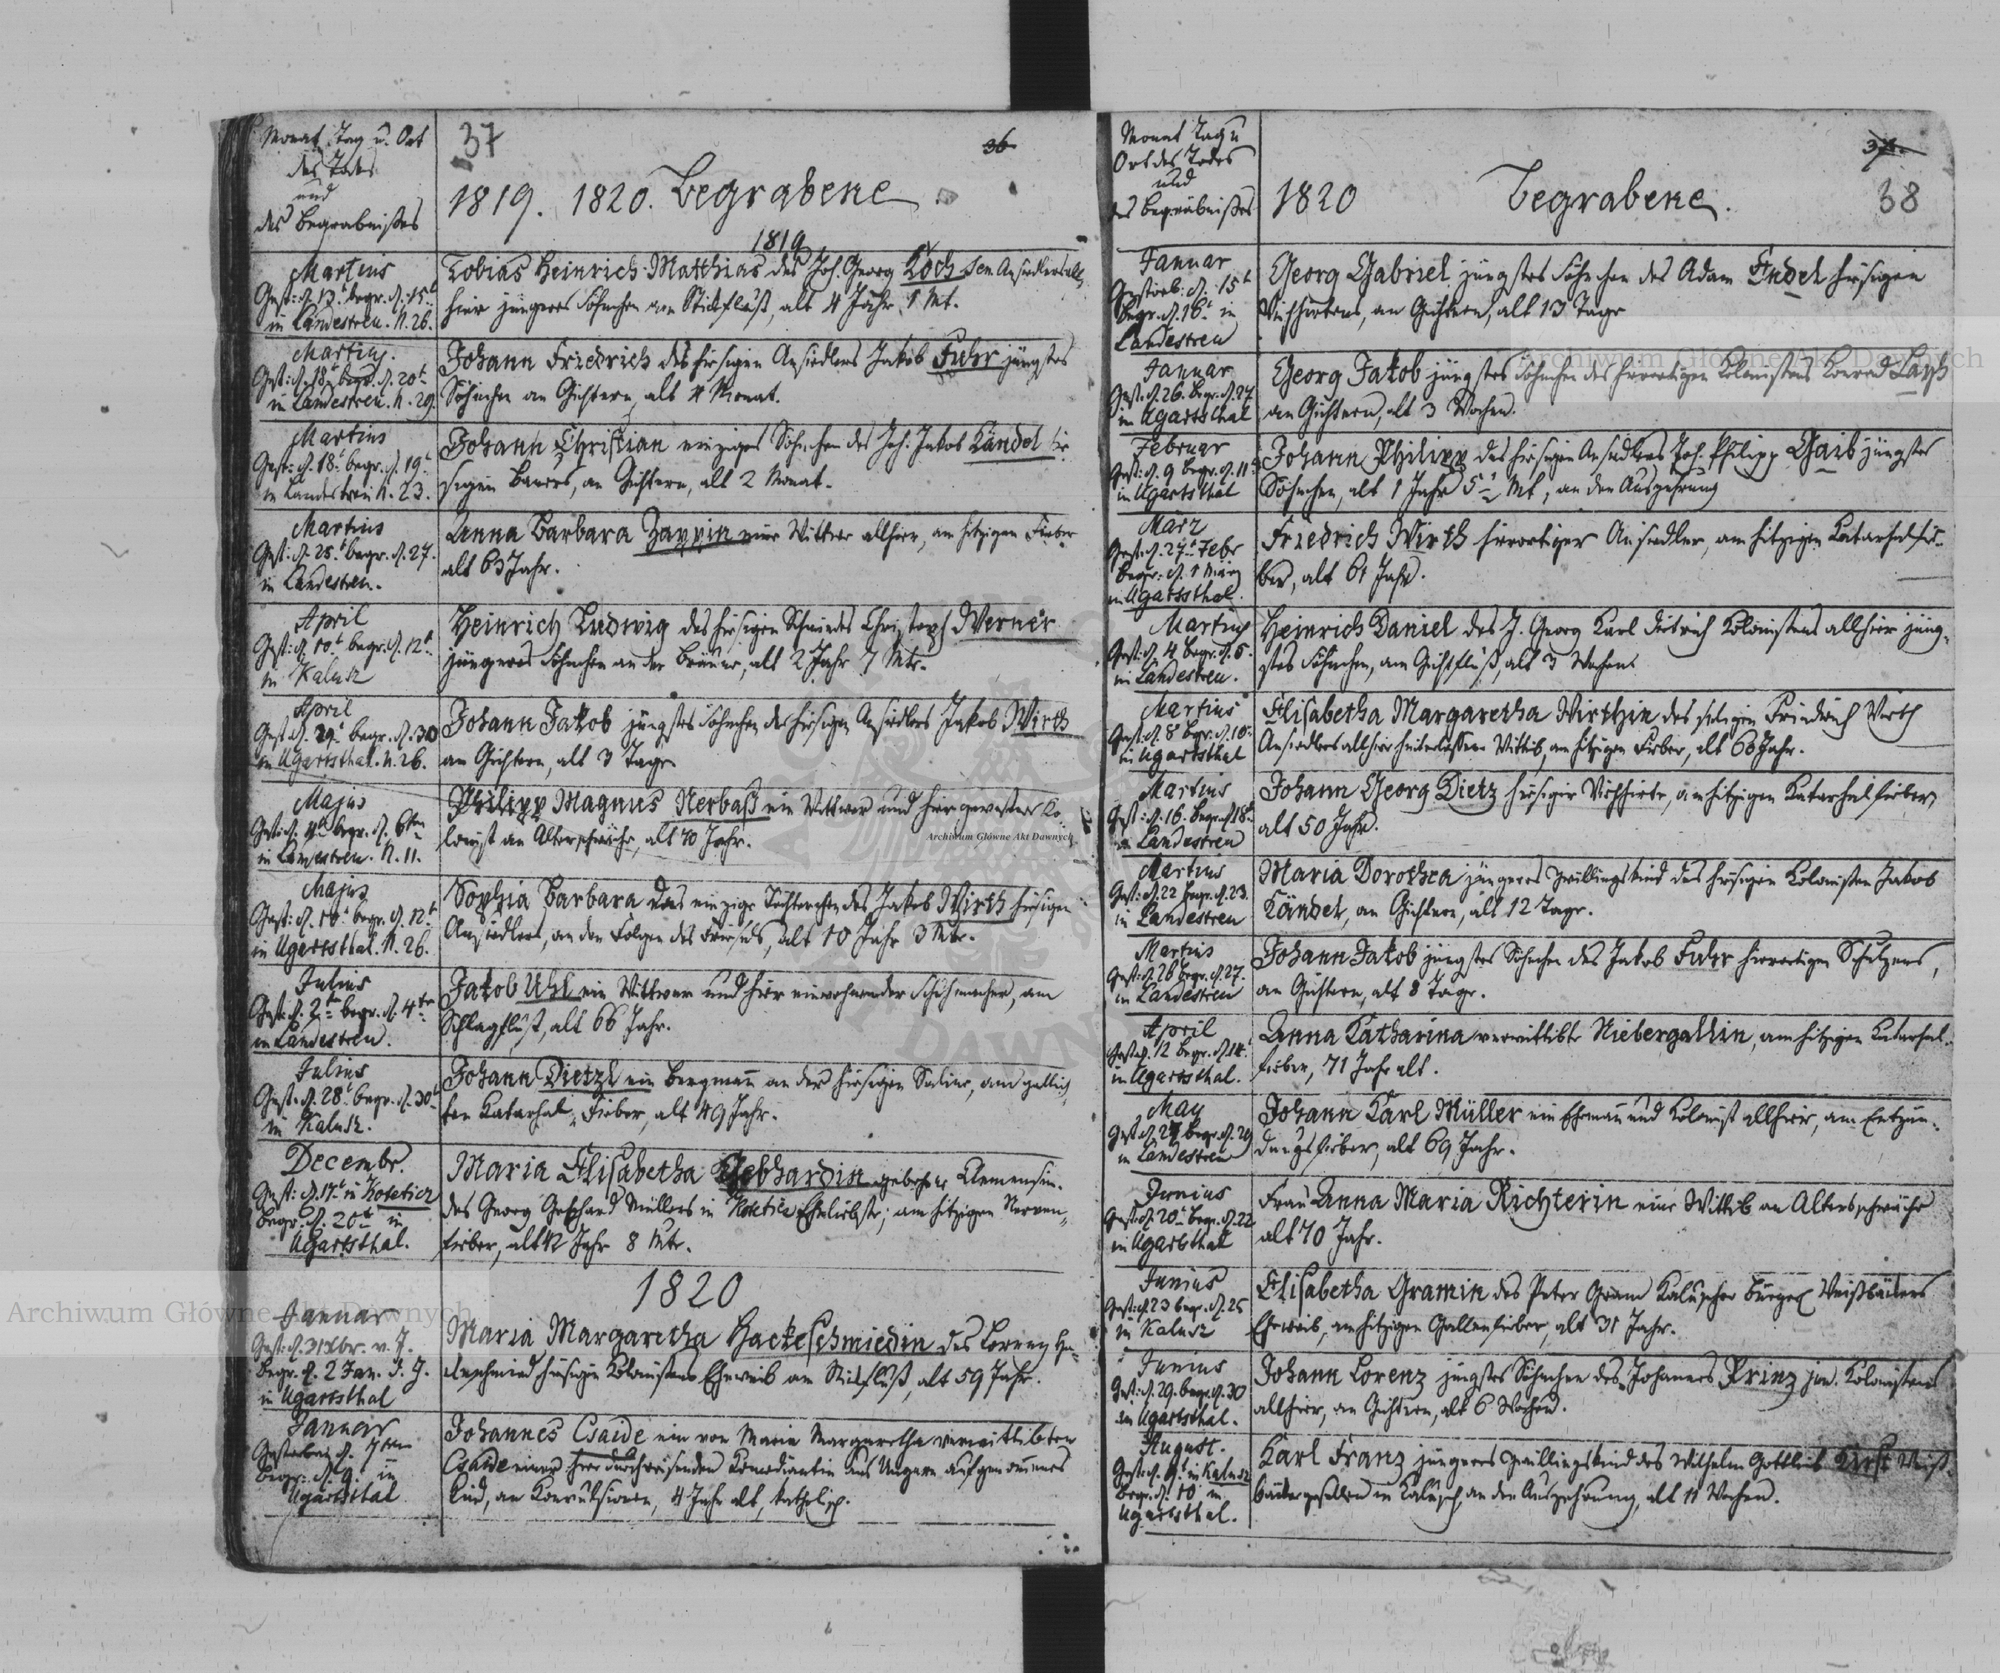 Monat, Tag u. Ort
des Todes
und
des Begrabnißes
37
36
1819. 1820. Begrabene
1819
Martius
Gest: d. 13t begr. d. 15t
in Landestreu. N. 26.
Tobias Heinrich Matthias des Joh. Georg Koch Sen. Ansiedlers all-
hier jüngeres Söhnchen am Stickfluß, alt 4 Jahr, 1 Mt.
Martius.
Gest: d. 18t begr. d. 20t
in Landestreu. N. 29.
Johann Friedrich des hiesigen Ansiedlers Jakob Fuhr jüngstes
Söhnchen an Gichtern, alt 4 Monat.
Martius
Gest: d. 18t begr. d. 19t
in Landestreu N. 23.
Johann Christian einziges Söhnchen des Joh. Jakob Kändel hie-
sigen Bauers, an Gichtern, alt 2 Monat.
Martius
Gest: d. 25t begr. d. 27.
in Landestreu.
Anna Barbara Zappin eine Wittwe allhier, am hitzigen Fieber
alt 63 Jahr.
April
Gest: d. 10t begr. d. 12t
in Kalusz
Heinrich Ludwig des hiesigen Schmiedes Christoph Werner
jüngeres Söhnchen an der Bräune, alt 2 Jahr 7 Mte.
April
Gest d. 29t begr. d. 30
in Ugartsthal. N. 26.
Johann Jakob jüngstes Söhnchen des hiesigen Ansiedlers Jakob Wirth
an Gichtern, alt 3 Tage
Majus
Gest: d. 4t begr. d. 6ten
in Landestreu. N. 11.
Philipp Magnus Nerbaß ein Wittwer und hier gewester Co-
lonist an Altersschwäche, alt 70 Jahr.
Majus
Gest: d. 10t begr. d. 12t
in Ugartsthal. N. 26.
Sophia Barbara das einzige Töchterchen des Jakob Wirth hiesigen
Ansiedlers, an den Folgen des Friesels, alt 10 Jahr 3 Mte.
Julius
Gest. d. 2t begr. d. 4te
in Landestreu.
Jakob Uhl ein Wittwer und hier einwohnender Schuhmacher, am
Schlagfluß, alt 66 Jahr.
Julius
Gest. d. 28t begr. d. 30t
in Kalusz.
Johann Dietzl ein Bergmann an der hiesigen Saline, am gallich-
ten Katarhal-Fieber, alt 49 Jahr.
Decembr.
Gest: d. 17t in Kotetice
begr. d. 20t in
Ugartsthal.
Maria Elisabetha Gebhardin geborne Clemensin.
des Georg Gebhard Müllers in Kotetice Eheliebste; am hitzigen Nerven-
fieber, alt 42 Jahr 8 Mte.
1820
Januar
Gest: d. 31 Xbr. v. J.
begr. d. 2 Jan. d. J.
in Ugartsthal
Maria Margaretha Hackeschmiedin des Lorenz Ha-
ckeschmied hiesigen Kolonistens Eheweib am Stickfluß, alt 59 Jahr.
Januar
Gestorben d. 7ten
begr. d. 9t in
Ugartsthal
Johannes Csaide ein von Maria Margaretha verwittibten
Csaide einer hier durchreisenden Komediantin aus Ungarn aufgenommenes
Kind, an Konvulsionen, 4 Jahr alt, katholisch.
Monat Tag u
Ort des Todes
und
des Begräbnißes
1820 Begrabene.
38
Januar
Gestorb: d. 15t
begr. d. 16t in
Landestreu
Georg Gabriel jüngstes Söhnchen des Adam Endel hiesigen
Viehhirtens, an Gichtern, alt 13 Tage
Januar
Gest: d. 26. begr. d. 27
in Ugartsthal
Georg Jakob jüngstes Söhnchen des hierortigen Kolonistens Konrad
an Gichtern, alt 3 Wochen.
Februar
Gest: d. 9 begr. d. 11t
in Ugartsthal
Johann Philipp des hiesigen Ansiedlers Joh. Philipp Gaib jüngstes
Söhnchen, alt 1 Jahr 5 Mt, an der Auszehrung
März
Gest. d. 27t Febr
begr: d. 1 März
in Ugartsthal.
Friedrich Wirth hierortiger Ansiedler, am hitzigen Katarhalfie-
ber, alt 61 Jahr.
Martius
Gest: d. 4 begr. d. 6.
in Landestreu.
Heinrich Daniel des J. Georg Karl Dietrich Kolonistens allhier jüng-
stes Söhnchen, am Gichtfluß, alt 3 Wochen
Martius
Gest. d. 8 begr. d. 10.
in Ugartsthal
Elisabetha Margaretha Wirthin des seligen Friedrich Wirth
Ansiedlers allhier hinterlassene Wittib, am hitzigen Fieber, alt 60 Jahr.
Martius
Gest: d. 16. begr. d. 18t
in Landestreu
Johann Georg Dietz hiesiger Viehhirte, am hitzigen Katarhalfieber,
alt 50 Jahr.
Martius
Gest: d. 22 begr. d. 23.
in Landestreu
Maria Dorothea jüngeres Zwillingskind des hiesigen Kolonisten Jakob
Kändel, an Gichtern, alt 12 Tage.
Martius
Gest: d. 26 begr. d. 27.
in Landestreu
Johann Jakob jüngstes Söhnchen des Jakob Fuhr hierortigen Schulzens,
an Gichtern, alt 8 Tage.
April
Gest. d. 12 begr. d. 14t
in Ugartsthal.
Anna Katharina verwittibte Niebergallin, am hitzigen Katarhal-
fieber, 71 Jahr alt.
May
Gest d. 27 begr. d. 29
in Landestreu
Johann Karl Müller ein Ehemann und Kolonist allhier, am Entzün-
dungsfieber, alt 69 Jahr.
Junius
Gest. d. 20t begr. d. 22
in Ugartsthal
Frau Anna Maria Richterin eine Wittib an Altersschwäche
alt 70 Jahr.
Junius
Gest: d. 23 begr. d. 25
in Kalusz
Elisabetha Gramin des Peter Gram Kaluscher Bürgers Weißbäckers
Eheweib, am hitzigen Gallenfieber, alt 31 Jahr.
Junius
Gest: d. 29. begr. d. 30
in Ugartsthal.
Johann Lorenz jüngstes Söhnchen des Johannes Prinz jun. Kolonistens
allhier, an Gichtern, alt 6 Wochen.
August.
Gest. d. 9t in Kalusz
begr. d. 10 in
Ugartsthal.
Karl Franz jüngeres Zwillingskind des Wilhelm Gottlieb Kirst Weiß-
bäckergesellen in Kalusch, an der Auszehrung, alt 11 Wochen.
Archiwum Główne Akt Dawnych
Archiwum Główne Akt Dawnych
Archiwum Główne Akt Dawnych